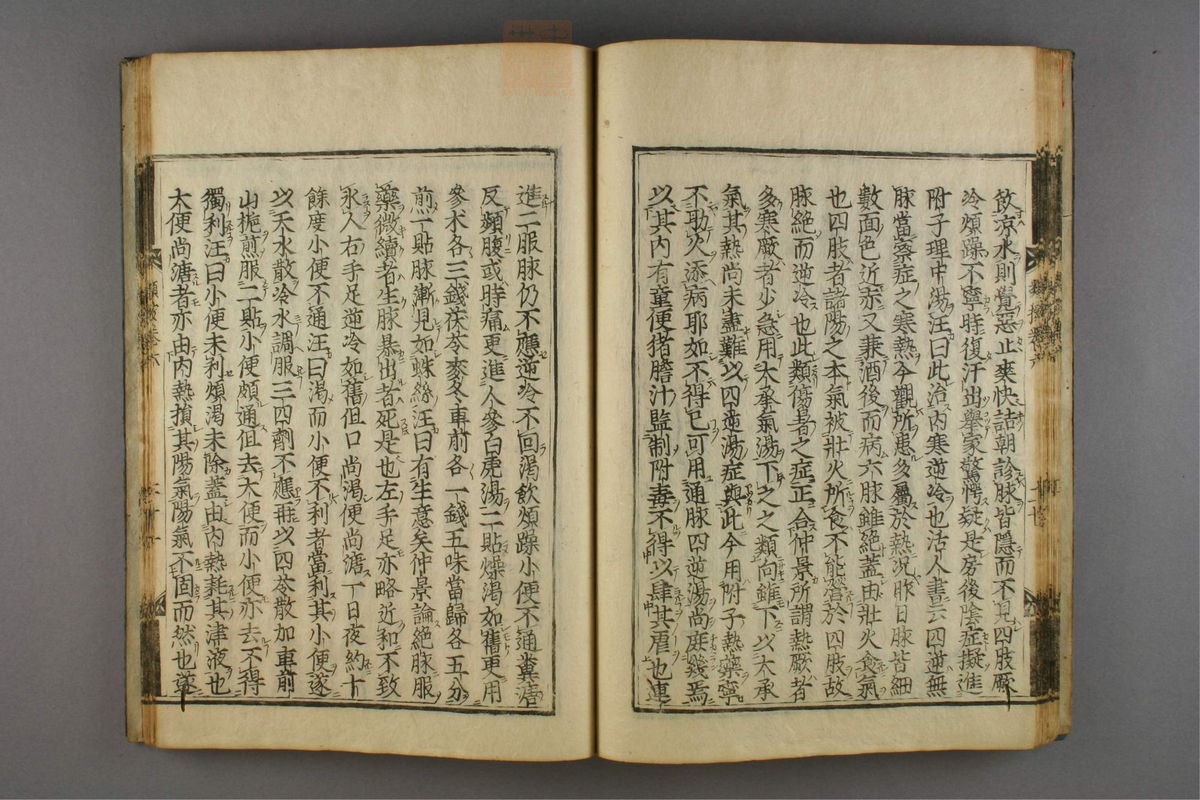 飲凉水則覺惡止爽快詰朝診脉皆隱而不見四肢厥
冷煩躁不寧時復汗出舉家驚愕疑是房後陰症擬進
附子理中湯汪曰此治內寒逆冷也活人書云四逆無
脉當察症之寒熱今觀所患多屬於熱况昨日脉皆細
數面色近赤又兼酒後而病六脉雖絕蓋由壯火食氣
也四肢者諸陽之本氣被壯火所食不能營於四肢故
脉絕而逆冷也此類傷暑之症正合仲景所謂熱厥者
多寒厥者少急用大承氣湯下之之類向雖下以大承
氣其熱尚未盡難以四逆湯症與此今用附子熱藥寧
不助火添病耶如不得已可用通脉四逆湯尚庻幾焉
以其內有童便猪膽汁監制附毒不得以肆其虐也連
進二服脉仍不應逆冷不回渴飲煩躁小便不通糞溏
反頻腹或時痛更進人參白虎湯二貼燥渴如舊更用
參术各三錢茯苓麥冬車前各一錢五味當歸各五分
煎一貼脉漸見如蛛絲汪曰有生意矣仲景論絕脉服
藥微續者生脉暴出者死是也左手足亦略近和不致
氷人右手足逆冷如舊但口尚渴便尚溏一日夜約十
餘度小便不通汪曰渴而小便不利者當利其小便遂
以天水散冷水調服三四劑不應再以四苓散加車前
山梔煎服二貼小便頗通但去大便而小便亦去不得
獨利汪曰小便未利煩渴未除蓋由內熱耗其津液也
大便尚溏者亦由內熱損其陽氣陽氣不固而然也遂